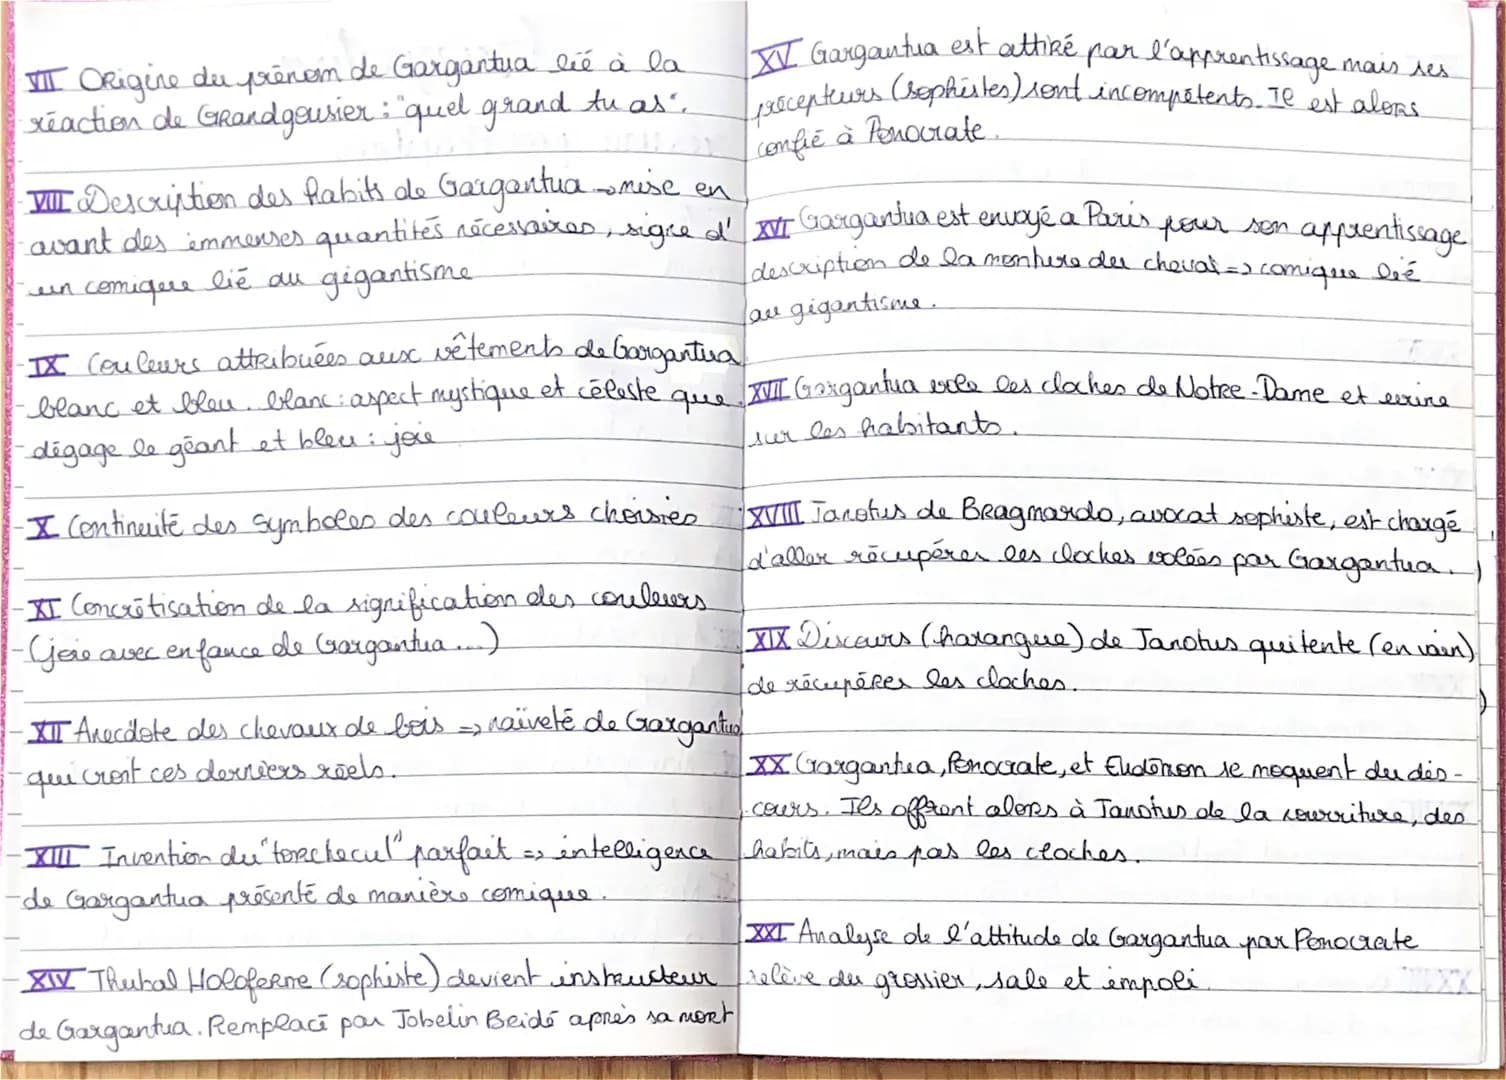 VII Origine du prénom de Gargantua lié à la
réaction de Grandgousier : "quel grand tu as".
VIII Description des habits de Gargantua → mise en
avant des immenses quantités nécessaires, signe d'
un comique lié au gigantisme
IX Couleurs attribuées aux vêtements de Gargantua
blanc et bleu. blanc : aspect mystique et céleste que
dégage le géant et bleu : joie
X Continuité des symboles des couleurs choisies
XI Concrétisation de la signification des couleurs
(joie avec enfance de Gargantua ...)
XII Anecdote des chevaux de bois => naïveté de Gargantua
qui croit ces derniers réels.
XIII Invention du "torchecul" parfait => intelligence
de Gargantua présenté de manière comique.
XIV Thubal Holoferne (sophiste) devient instructeur
de Gargantua. Remplacé par Jobelin Beidé après sa mort
XV Gargantua est attiré par l'apprentissage mais ses
précepteurs (sophistes) sont incompétents. Il est alors
confié à Ponocrate.
XVI Gargantua est envoyé a Paris pour son apprentissage
description de la monture du cheval => comique lié
au gigantisme.
XVII Gargantua vole les cloches de Notre-Dame et urine
sur les habitants.
XVIII Janotus de Bragmardo, avocat sophiste, est chargé
d'aller récupérer les cloches volées par Gargantua.
XIX Discours (harangue) de Janotus qui tente (en vain)
de récupérer les cloches.
XX Gargantua, Ponocrate, et Eudémon se moquent du dis-
cours. Ils offrent alors à Janotus de la nourriture, des
habits, mais pas les cloches.
XXI Analyse de l'attitude de Gargantua par Ponocrate
relève du grossier, sale et impoli.